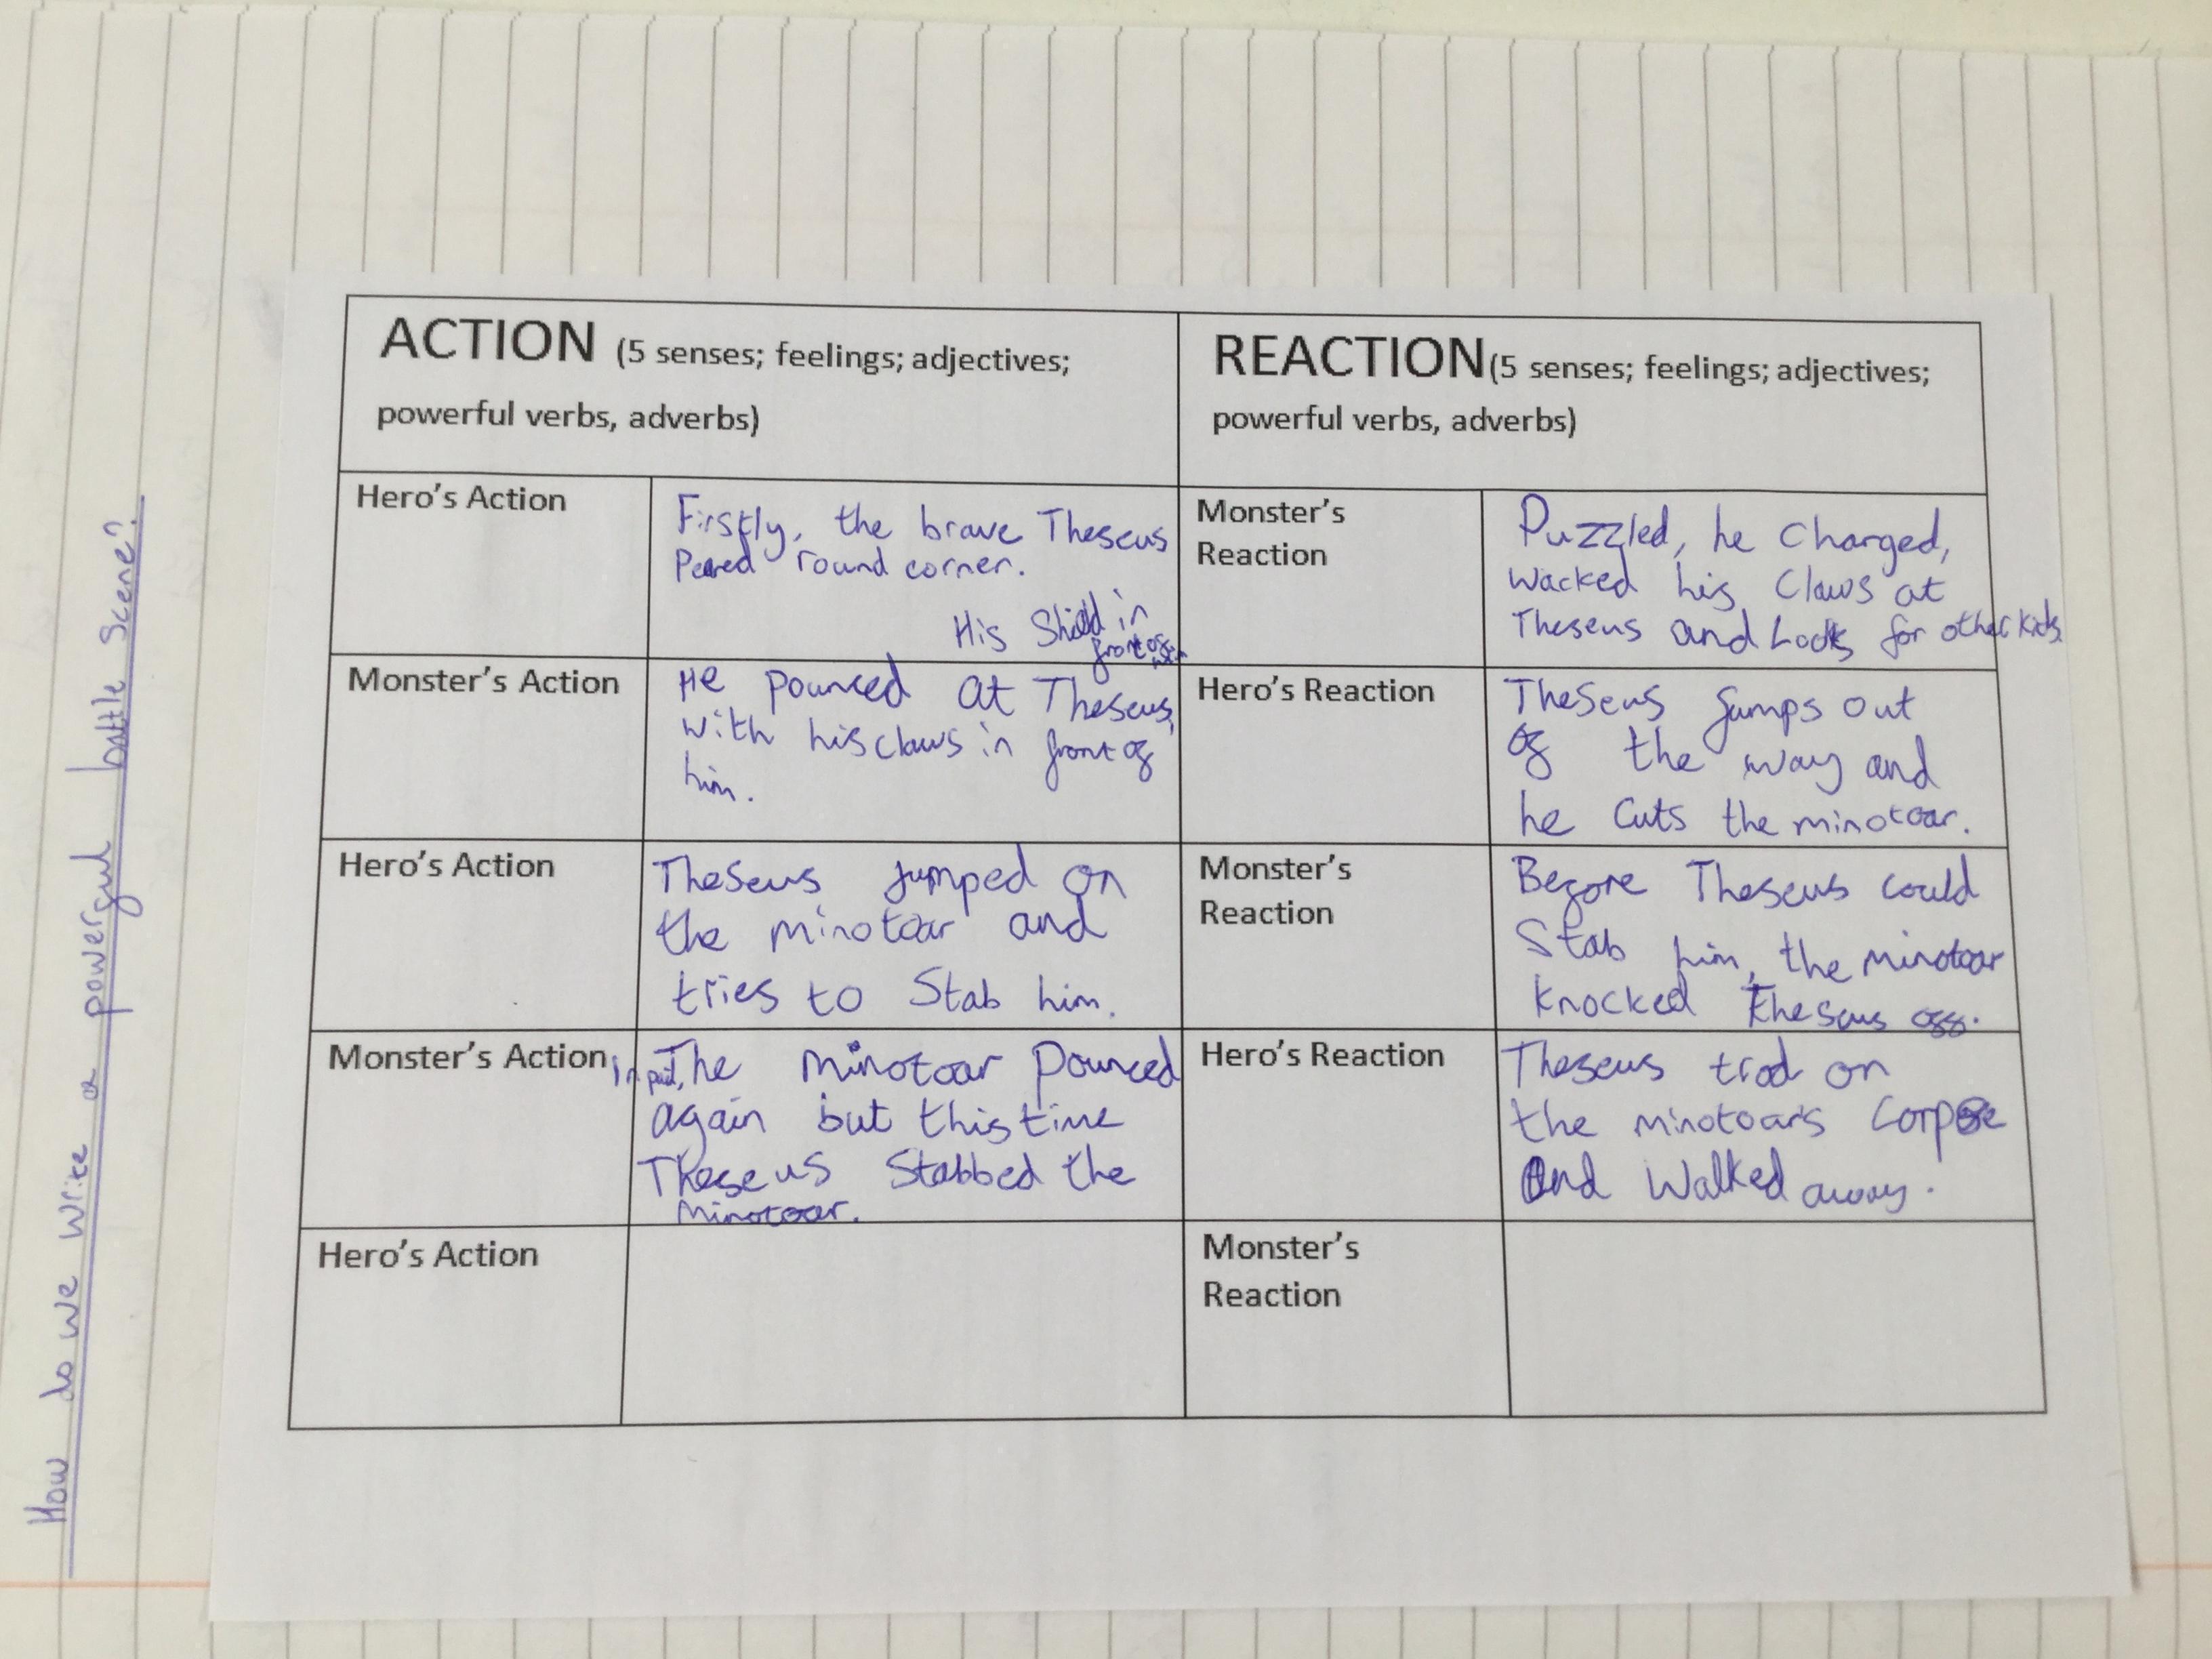 How do we write a powerful battle scene?
ACTION (5 senses; feelings; adjectives;
powerful verbs, adverbs)
REACTION(5 senses; feelings; adjectives;
powerful verbs, adverbs)
Hero's Action
Firstly, the brave Theseus
Peered round corner.
His Shield in
front of
Monster's
Reaction
Puzzled, he charged,
wacked his Claws at
Theseus and Looks for other kids.
Monster's Action
He pounced at Theseus,
with his claws in front of
him.
Hero's Reaction
Theseus jumps out
of the way and
he cuts the minotoar.
Hero's Action
Theseus jumped on
the minotoar and
tries to Stab him.
Monster's
Reaction
Before Theseus could
Stab him, the minotoar
knocked Theseus off.
Monster's Action
In pain, The minotoar Pounced
again but this time
Theseus Stabbed the
Minotoar.
Hero's Reaction
Theseus trod on
the minotoar's corpse
And Walked away.
Hero's Action
Monster's
Reaction